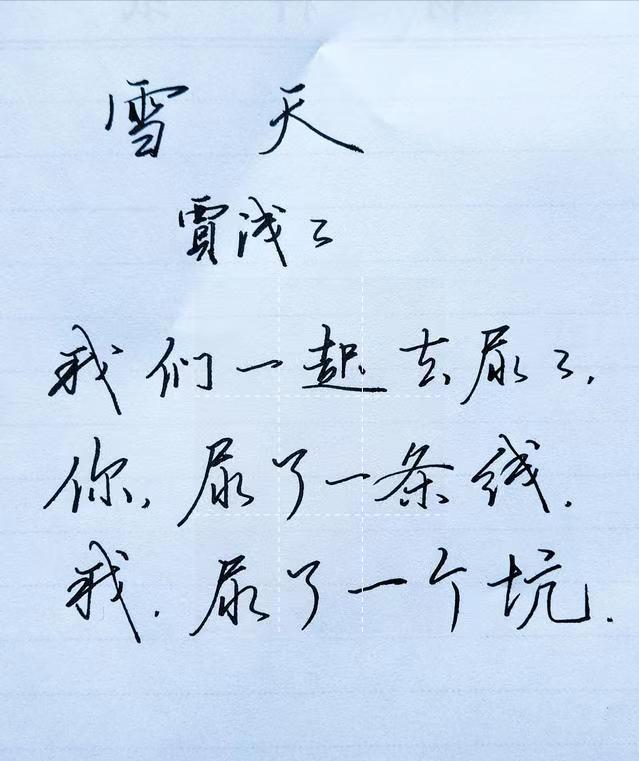 雪天
賈浅々
我们一起去尿々,
你,尿了一条线.
我.尿了一个坑.